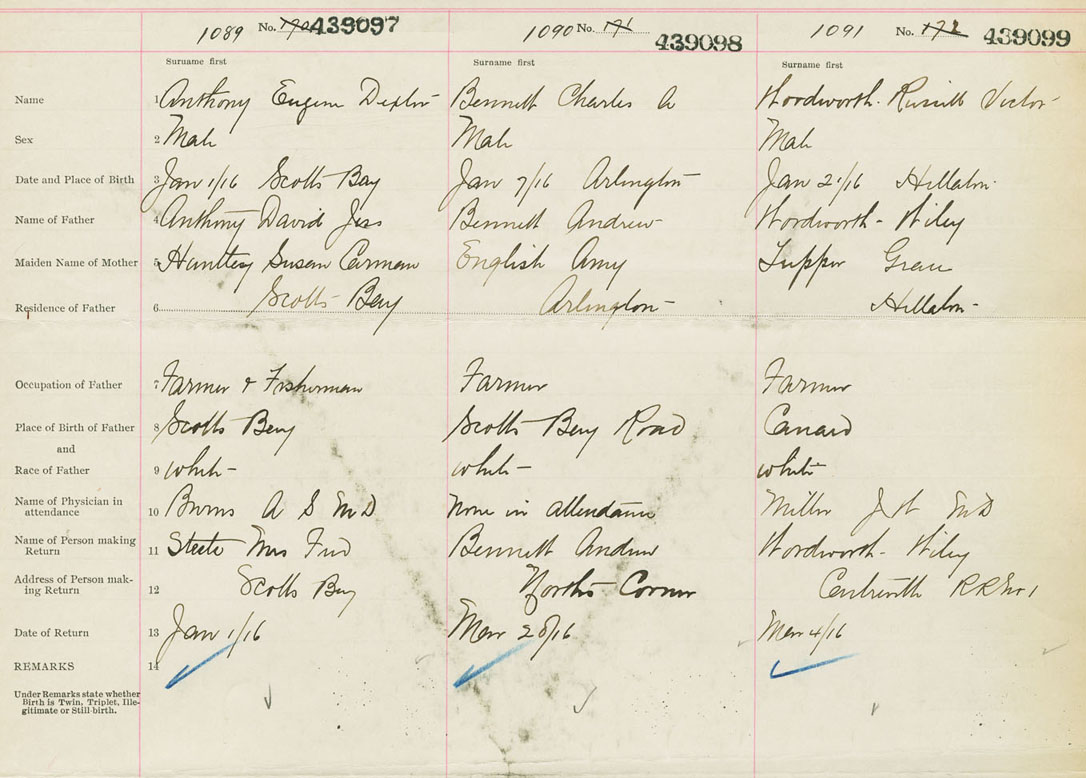 1089 No. 170 439097 1090 No. 171 439098 1091 No. 172 439099
Surname first Surname first Surname first
Name 1 Anthony Eugene Dexter Bennett Charles A Wordworth Russell Victor
Sex 2 Male Male Male
Date and Place of Birth 3 Jan 1/16 Scotts Bay Jan 7/16 Arlington Jan 21/16 Hillaton
Name of Father 4 Anthony David Jess Bennett Andrew Wordworth Wiley
Maiden Name of Mother 5 Huntley Susan Carman English Amy Tupper Grace
Residence of Father 6 Scotts Bay Arlington Hillaton
Occupation of Father 7 Farmer & Fisherman Farmer Farmer
Place of Birth of Father 8 Scotts Bay Scotts Bay Road Canard
and
Race of Father 9 white white white
Name of Physician in
attendance 10 Burns A S MD None in attendance Miller MD
Name of Person making
Return 11 Steele Mrs Fred Bennett Andrew Wordworth Wiley
Address of Person mak-
ing Return 12 Scotts Bay Norths Corner Centreville RR No 1
Date of Return 13 Jan 1/16 Mar 28/16 Mar 4/16
REMARKS 14
Under Remarks state whether
Birth is Twin, Triplet, Ille-
gitimate or Still-birth.